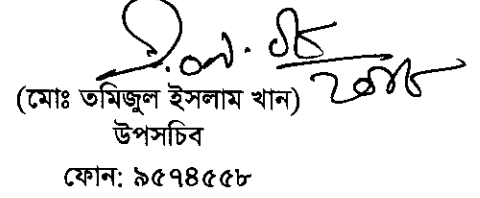 (মোঃ তমিজুল ইসলাম খান)
উপসচিব
ফোন: ৯৫৭৪৫৫৮